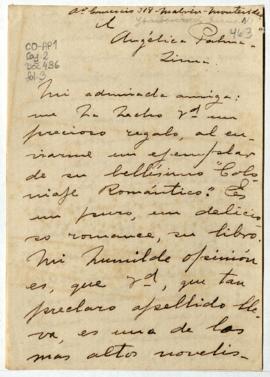 Av. Comercio 318 - Malvín - Montevideo
463
A
Angélica Palma -
Lima.
CO-AP1
Caj 2
Doc 486
fol. 3
Mi admirada amiga:
me ha hecho Vd un
precioso regalo, al en
viarme un ejemplar
de su bellísimo "Colo
niaje Romántico". Es
un puro, un delicio
so romance, su libro.
Mi humilde opinion
es, que Vd, que tan
preclaro apellido lle
va, es una de las
mas altos novelis-